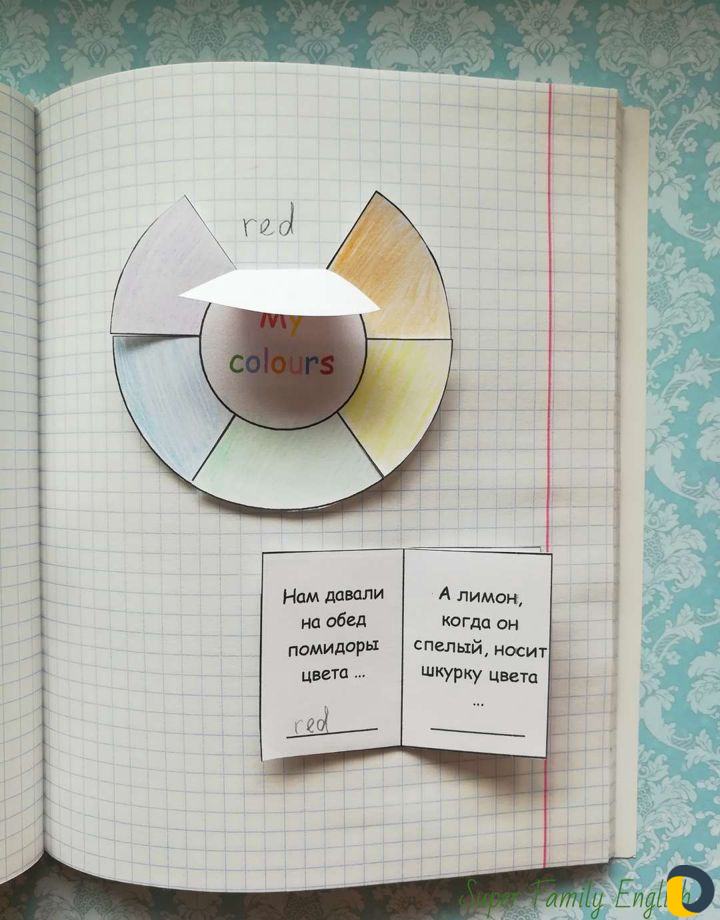 red
My
colours
Нам давали
на обед
помидоры
цвета ...
red
А лимон,
когда он
спелый, носит
шкурку цвета
...
Super Family English